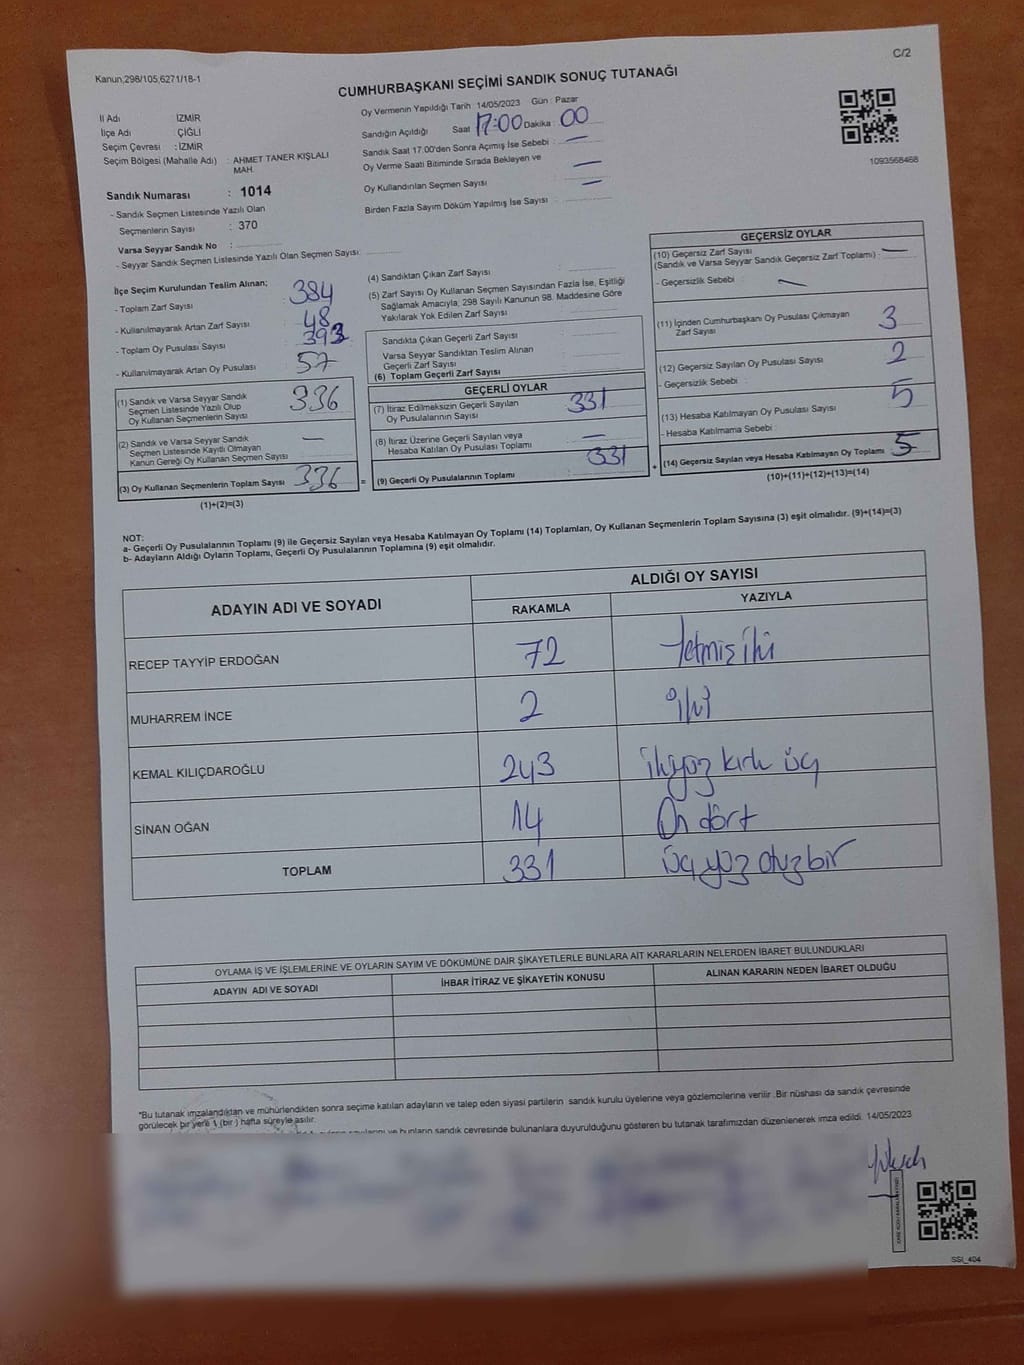 Kanun,298/105,6271/18-1
C/2
CUMHURBAŞKANI SEÇİMİ SANDIK SONUÇ TUTANAĞI
İl Adı İZMİR
İlçe Adı : ÇİĞLİ
Seçim Çevresi : İZMİR
Seçim Bölgesi (Mahalle Adı) : AHMET TANER KIŞLALI
MAH.
Sandık Numarası : 1014
- Sandık Seçmen Listesinde Yazılı Olan
Seçmenlerin Sayısı : 370
Varsa Seyyar Sandık No :
- Seyyar Sandık Seçmen Listesinde Yazılı Olan Seçmen Sayısı:
Oy Vermenin Yapıldığı Tarih : 14/05/2023 Gün : Pazar
Sandığın Açıldığı Saat 17:00 Dakika : 00
Sandık Saat 17:00'den Sonra Açımış İse Sebebi : —
Oy Verme Saati Bitiminde Sırada Bekleyen ve
Oy Kullandırılan Seçmen Sayısı : —
Birden Fazla Sayım Döküm Yapılmış İse Sayısı : —
1093568468
İlçe Seçim Kurulundan Teslim Alınan;
- Toplam Zarf Sayısı : 384
- Kullanılmayarak Artan Zarf Sayısı : 48
- Toplam Oy Pusulası Sayısı : 393
- Kullanılmayarak Artan Oy Pusulası : 57
(1) Sandık ve Varsa Seyyar Sandık
Seçmen Listesinde Yazılı Olup
Oy Kullanan Seçmenlerin Sayısı : 336
(2) Sandık ve Varsa Seyyar Sandık
Seçmen Listesinde Kayıtlı Olmayan
Kanun Gereği Oy Kullanan Seçmen Sayısı : —
(3) Oy Kullanan Seçmenlerin Toplam Sayısı 336 =
(1)+(2)=(3)
(4) Sandıktan Çıkan Zarf Sayısı :
(5) Zarf Sayısı Oy Kullanan Seçmen Sayısından Fazla İse, Eşitliği
Sağlamak Amacıyla; 298 Sayılı Kanunun 98. Maddesine Göre
Yakılarak Yok Edilen Zarf Sayısı :
Sandıkta Çıkan Geçerli Zarf Sayısı :
Varsa Seyyar Sandıktan Teslim Alınan
Geçerli Zarf Sayısı :
(6) Toplam Geçerli Zarf Sayısı
GEÇERLİ OYLAR
(7) İtiraz Edilmeksizin Geçerli Sayılan
Oy Pusulalarının Sayısı : 331
(8) İtiraz Üzerine Geçerli Sayılan veya
Hesaba Katılan Oy Pusulası Toplamı : —
(9) Geçerli Oy Pusulalarının Toplamı : 331 +
GEÇERSİZ OYLAR
(10) Geçersiz Zarf Sayısı
(Sandık ve Varsa Seyyar Sandık Geçersiz Zarf Toplamı) : —
- Geçersizlik Sebebi : —
(11) İçinden Cumhurbaşkanı Oy Pusulası Çıkmayan
Zarf Sayısı : 3
(12) Geçersiz Sayılan Oy Pusulası Sayısı : 2
- Geçersizlik Sebebi :
(13) Hesaba Katılmayan Oy Pusulası Sayısı : 5
- Hesaba Katılmama Sebebi :
(14) Geçersiz Sayılan veya Hesaba Katılmayan Oy Toplamı 5
(10)+(11)+(12)+(13)=(14)
NOT:
a- Geçerli Oy Pusulalarının Toplamı (9) ile Geçersiz Sayılan veya Hesaba Katılmayan Oy Toplamı (14) Toplamları, Oy Kullanan Seçmenlerin Toplam Sayısına (3) eşit olmalıdır. (9)+(14)=(3)
b- Adayların Aldığı Oyların Toplamı, Geçerli Oy Pusulalarının Toplamına (9) eşit olmalıdır.
ADAYIN ADI VE SOYADI
ALDIĞI OY SAYISI
RAKAMLA YAZIYLA
RECEP TAYYİP ERDOĞAN 72 Yetmiş iki
MUHARREM İNCE 2 iki
KEMAL KILIÇDAROĞLU 243 ikiyüz kırk üç
SİNAN OĞAN 14 On dört
TOPLAM 331 üç yüz otuz bir
OYLAMA İŞ VE İŞLEMLERİNE VE OYLARIN SAYIM VE DÖKÜMÜNE DAİR ŞİKAYETLERLE BUNLARA AİT KARARLARIN NELERDEN İBARET BULUNDUKLARI
ADAYIN ADI VE SOYADI İHBAR İTİRAZ VE ŞİKAYETİN KONUSU ALINAN KARARIN NEDEN İBARET OLDUĞU
"Bu tutanak imzalandıktan ve mühürlendikten sonra seçime katılan adayların ve talep eden siyasi partilerin sandık kurulu üyelerine veya gözlemcilerine verilir .Bir nüshası da sandık çevresinde
görülecek bir yere 1 (bir) hafta süreyle asılır.
sandık çevresinde bulunanlara duyurulduğunu gösteren bu tutanak tarafımızdan düzenlenerek imza edildi. 14/05/2023
SSI_404